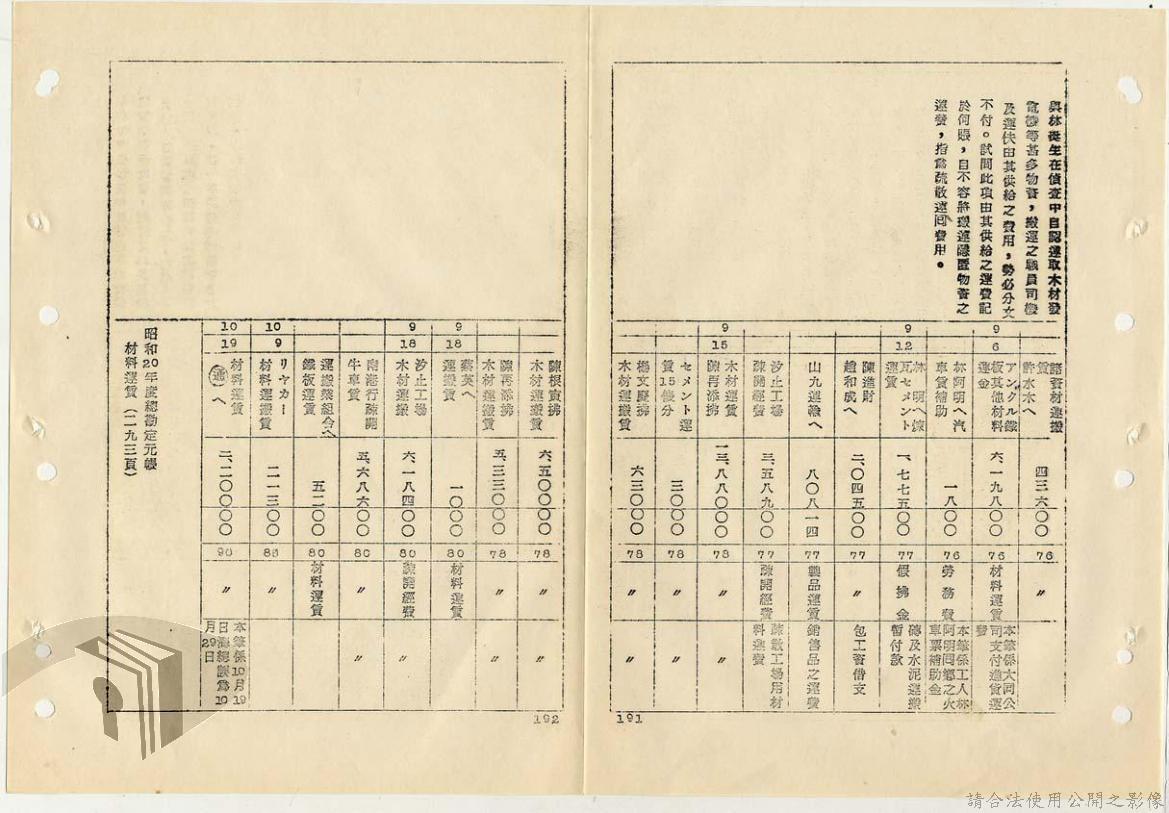 與林挺生在偵查中自認運取木材發
電機等甚多物資，搬運之職員司機
及運伕由其供給之費用，勢必分文
不付。試問此項由其供給之運費記
於何賬，自不容將搬運隱匿物資之
運費，指為疏散運回費用。
諸資材運搬賃
許水木へ
四三六〇〇
76
〃
9
6
アングル鐵板其他材料運金
六、一九八〇〇
76
材料運賃
本筆係大同公司支付進貨運費
林阿明へ汽車賃補助
一八〇〇
76
勞務費
本筆係工人林阿明回鄉之火車票補助金
9
12
林明へ煉瓦セメント運賃
一、七七五〇〇
77
假拂金
磚及水泥運搬暫付款
陳進財
趙和成へ
二、〇四五〇〇
77
〃
包工資借支
山九運輸へ
八〇八一四
77
製品運賃
銷售品之運費
汐止工場
疎開經費
三、五八九〇〇
77
疎開經費
疎散工場用材料運費
9
15
木材運賃
陳再添拂
一三、八八〇〇〇
78
〃
〃
セメント運賃15俵分
三〇〇〇
78
〃
〃
楊文慶拂
木材運搬賃
六三〇〇〇
78
〃
〃
191
陳根寅拂
木材運搬賃
六、五〇〇〇〇
78
〃
〃
陳再添拂
木材運搬賃
五、三三〇〇〇
78
〃
9
18
蔡英へ
運搬賃
一〇〇〇
80
材料運賃
9
18
汐止工場
木材運搬
六、一八四〇〇
80
疎開經費
〃
南港行疎開
牛車賃
五、六八六〇〇
80
〃
〃
運搬業組合へ
鐵板運賃
五二〇〇
80
材料運賃
10
9
リヤカー
材料運搬賃
二一三〇〇
80
〃
10
19
材料運賃
通へ
二、二〇〇〇〇
90
〃
本筆係10月19日
10月29日
192
昭和20年度總勘定元帳
材料運賃（二九三頁）
請合法使用公開之影像